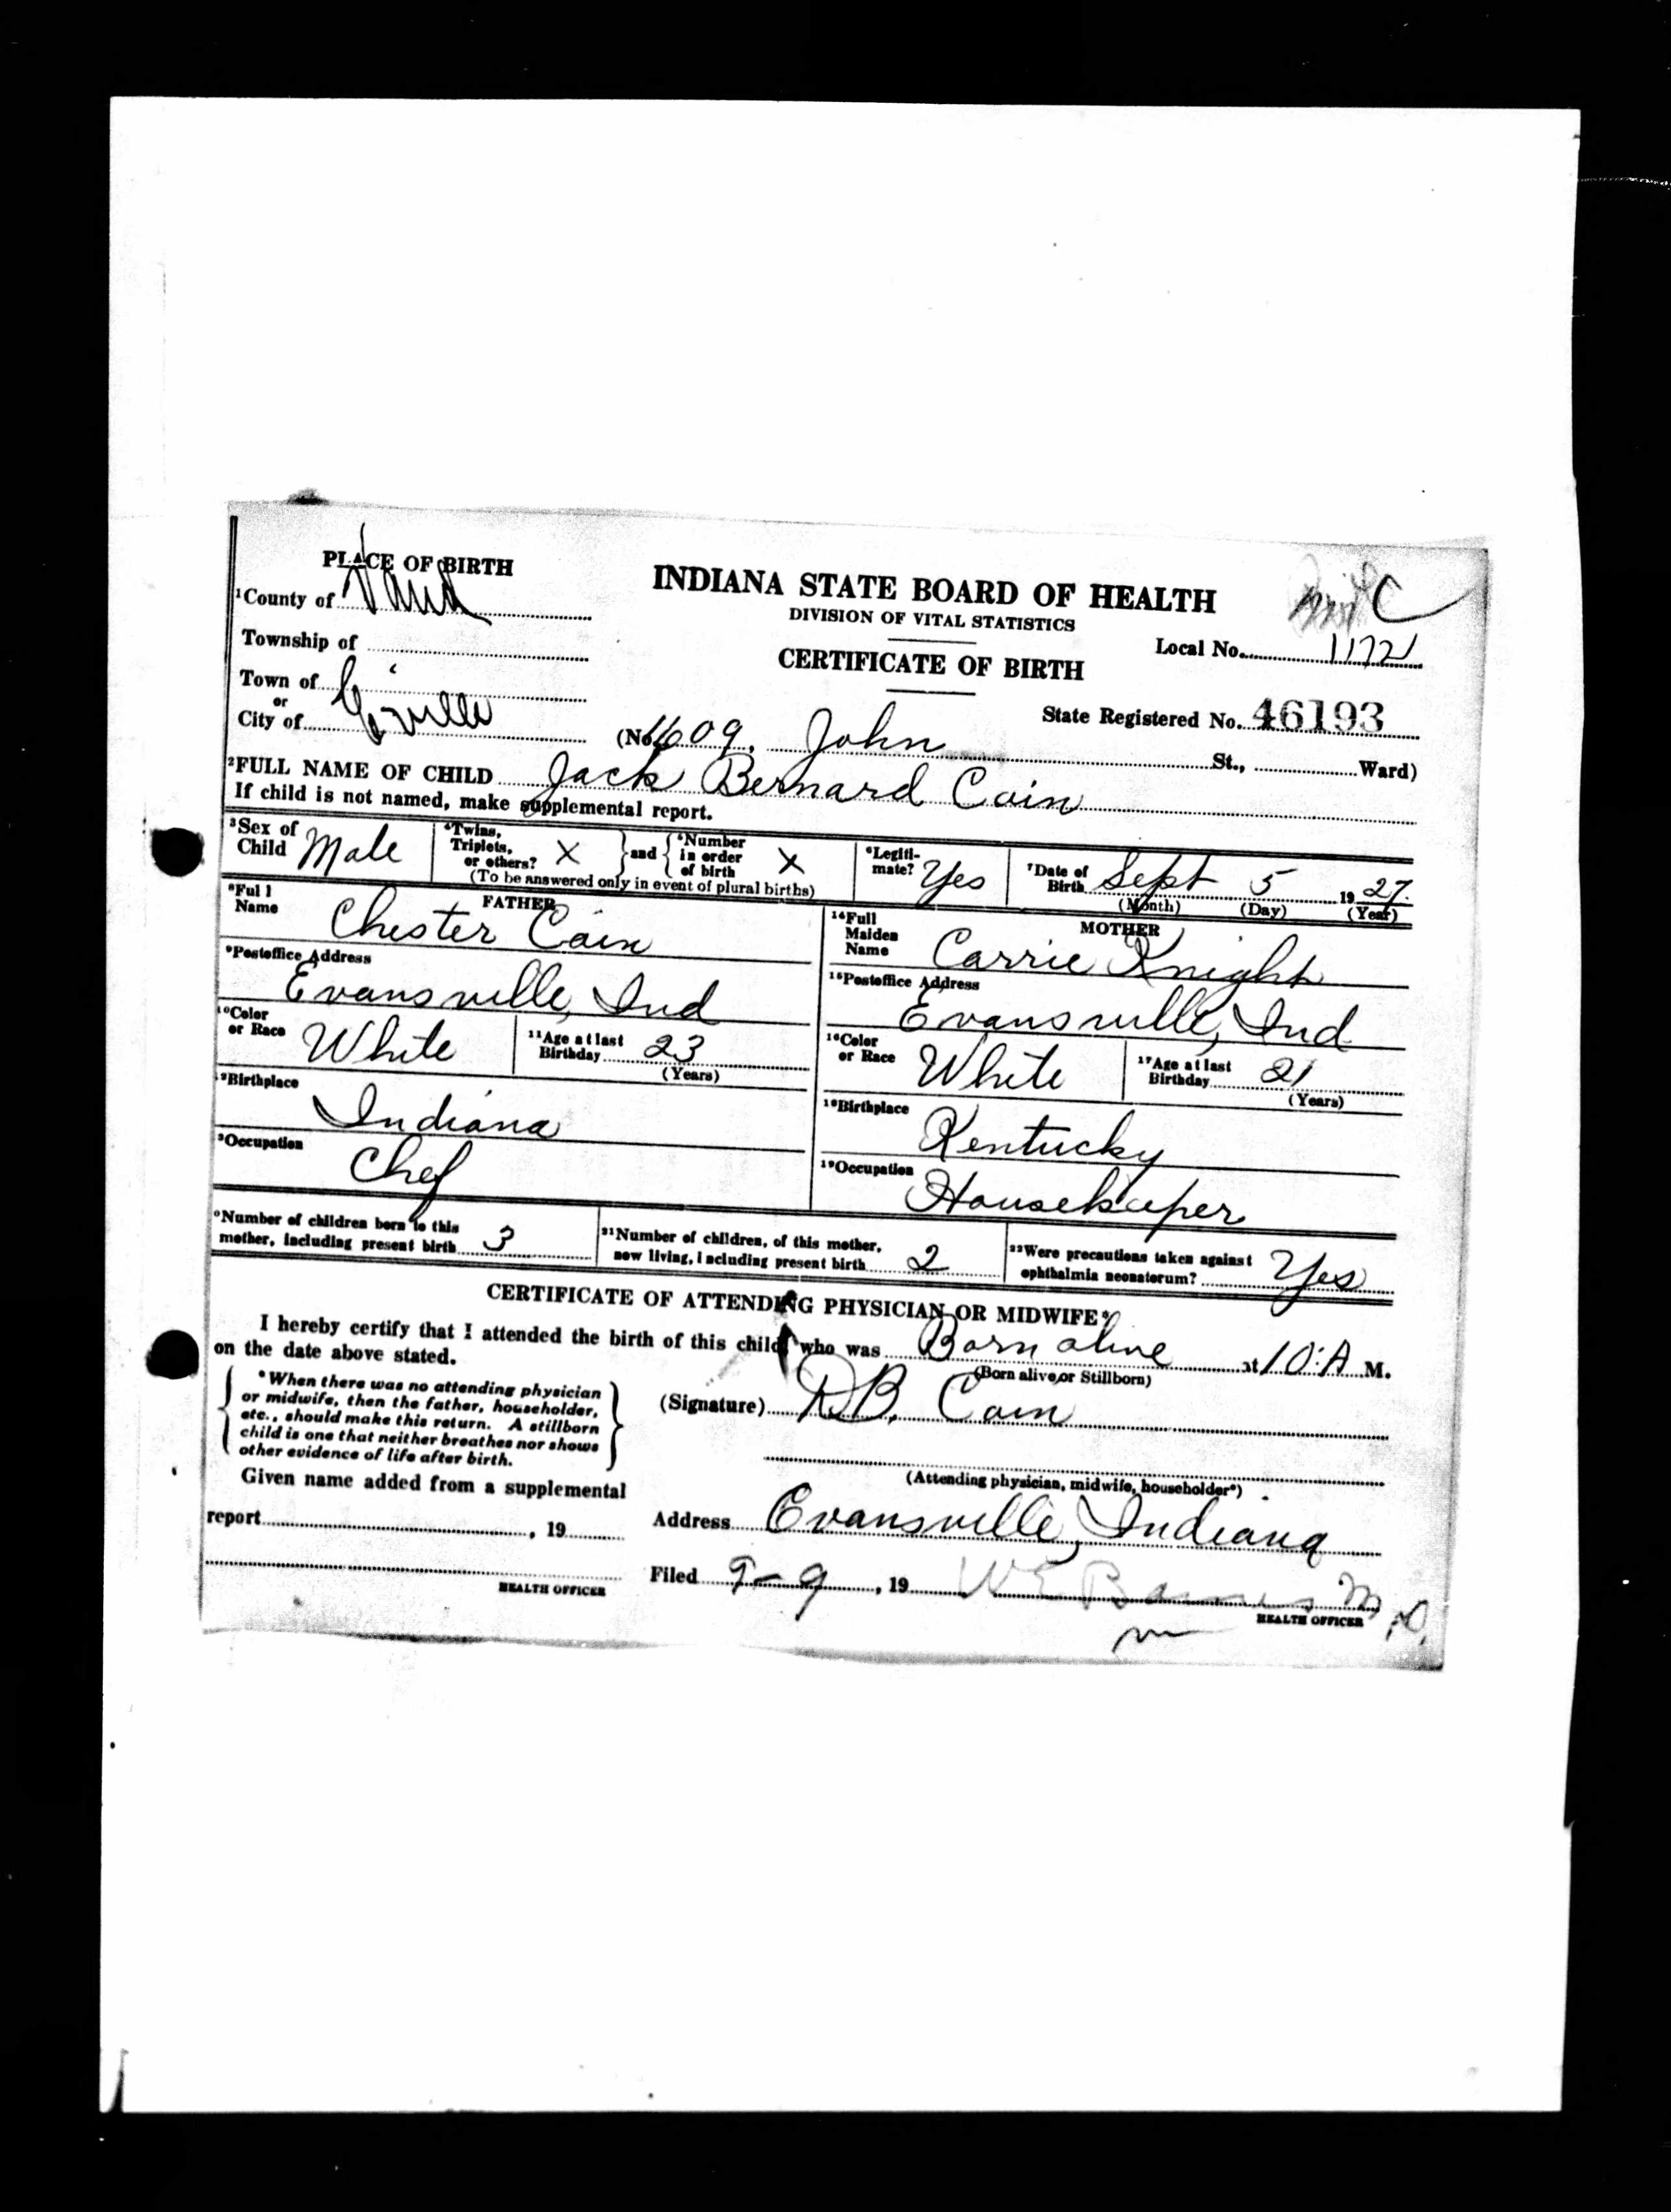 PLACE OF BIRTH
¹County of Vand
Township of
Town of
or
City of E'ville
INDIANA STATE BOARD OF HEALTH
DIVISION OF VITAL STATISTICS
CERTIFICATE OF BIRTH
C
Local No. 1172
State Registered No. 46193
(No. 1609, John St., Ward)
²FULL NAME OF CHILD Jack Bernard Cain
If child is not named, make supplemental report.
³Sex of Child Male
⁴Twins, Triplets, or others? X and ⁵Number in order of birth X
(To be answered only in event of plural births)
⁶Legiti-mate? Yes
⁷Date of Birth Sept 5 1927.
(Month) (Day) (Year)
FATHER
⁸Full Name Chester Cain
⁹Postoffice Address
Evansville, Ind
¹⁰Color or Race White
¹¹Age at last Birthday 23
(Years)
¹²Birthplace
Indiana
¹³Occupation
Chef
MOTHER
¹⁴Full Maiden Name Carrie Knight
¹⁵Postoffice Address
Evansville, Ind
¹⁶Color or Race White
¹⁷Age at last Birthday 21
(Years)
¹⁸Birthplace
Kentucky
¹⁹Occupation
Housekeeper
²⁰Number of children born to this mother, including present birth 3
²¹Number of children, of this mother, now living, including present birth 2
²²Were precautions taken against ophthalmia neonatorum? Yes
CERTIFICATE OF ATTENDING PHYSICIAN OR MIDWIFE*
I hereby certify that I attended the birth of this child, who was Born alive at 10:A M.
on the date above stated.
(Born alive or Stillborn)
*When there was no attending physician
or midwife, then the father, householder,
etc., should make this return. A stillborn
child is one that neither breathes nor shows
other evidence of life after birth.
(Signature) D.B. Cain
(Attending physician, midwife, householder*)
Given name added from a supplemental
report , 19
HEALTH OFFICER
Address Evansville, Indiana
Filed 9-9, 19 W E Barnes M.D.
HEALTH OFFICER